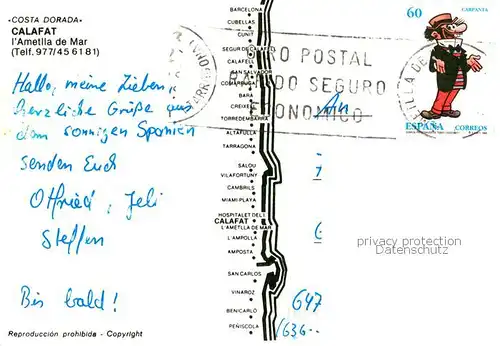 «COSTA DORADA»
CALAFAT
l'Ametlla de Mar
(Telf. 977/45 61 81)
Hallo, meine Lieben,
herzliche Grüße aus
dem sonnigen Spanien
senden Euch
Otfried, Jeli
Steffen
Bis bald!
Reproducción prohibida - Copyright
BARCELONA
CUBELLAS
CUNIT
SEGUR DE CALAFELL
CALAFELL
SAN SALVADOR
COMARRUGA
BARA
CREIXELL
TORREDEMBARRA
ALTAFULLA
TARRAGONA
SALOU
VILAFORTUNY
CAMBRILS
MIAMI PLAYA
HOSPITALET DEL I.
CALAFAT
L'AMETLLA DE MAR
L'AMPOLLA
AMPOSTA
SAN CARLOS
VINAROZ
BENICARLO
PEÑISCOLA
GIRO POSTAL
RAPIDO SEGURO
ECONOMICO
An
60
CARPANTA
ESPAÑA CORREOS
privacy protection
Datenschutz
647
1636--